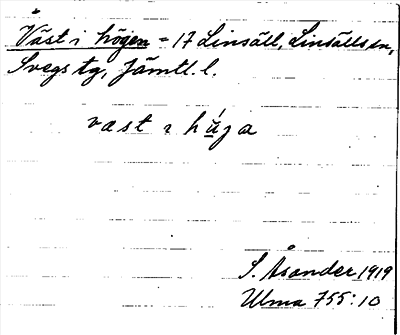 Väst i högen = 17 Linsäll, Linsälls sn,
Svegs tg, Jämtl. l.
vast i hú̲ja
S. Åsander 1919
Ulma 755:10